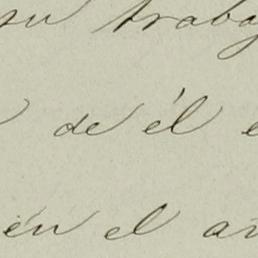 su traba
de él
én el